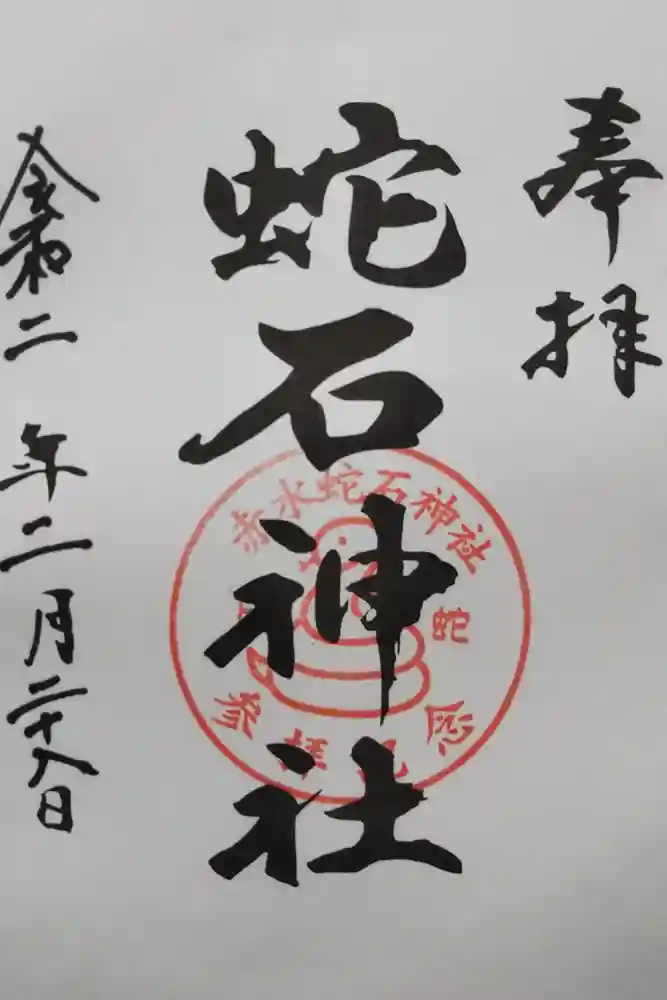 奉拝
蛇石神社
令和二年二月二十八日
赤水蛇石神社
蛇
参拝記念